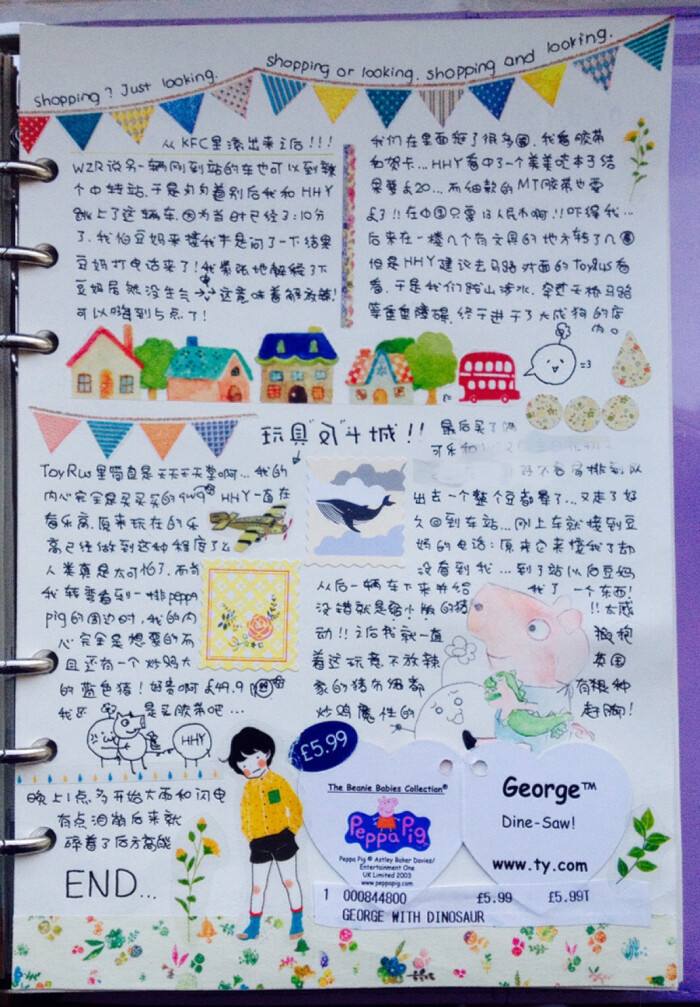 shopping? Just looking. shopping or looking. shopping and looking.
从KFC里滚出来之后!!!
WZR说另一辆刚到站的车也可以到辣
个中转站.于是匆匆着别后我和HHY
跳上了这辆车.因为当时已经3:10分
了.我怕豆妈来接我于是问了一下结果
豆妈打电话来了!我紧张地解释了下
豆妈居然没生气 这意味着解放着!
可以嗨到5点了!
我们在里面逛了很多圈.我看胶带
和贺卡...HHY看中了一个美美哒本子结
果要£20...而细款的MT胶带也要
£3!!在中国只要13人民币啊!!吓得我...
后来在一楼几个有文具的地方转了几圈
但是HHY建议去马路对面的ToyRus看
看.于是我们跋山涉水.穿过天桥马路
等重重障碍.终于进于了大成狗的店
内。
=3
玩具"反"斗城!!
ToyRus里简直是天天天天堂啊...我的
内心完全是买买买的 HHY一直在
看乐高.原来玩在的乐
高已经做到这种程度了
人类真是太可怕了.而当
我转弯看到一排peppa
pig的周边时,我的内
心完全是想要的而
且还有一个炒鸡大
的蓝色猪!好贵啊£49.9
我还是买胶带吧...
HHY
最后买了
可乐和
排到以
出去一个整个豆都晕了...又走了好
久回到车站...刚上车就接到豆
妈的电话:原来它来接我了却
没看到我...到了站以后豆妈
从后一辆车下来并给我了一个东西!
没错就是 小版的猪!!太感
动!!之后我就一直抱抱
着这玩意不放辣 英国
家的猪布细都有根种
炒鸡魔性的 赶脚!
晚上1点多开始大雨和闪电
有点泪崩后来就
碎着了后方高战
END...
£5.99
The Beanie Babies Collection®
Peppa Pig
Peppa Pig © Astley Baker Davies/
Entertainment One
UK Limited 2003
www.peppapig.com
George™
Dine-Saw!
www.ty.com
1 000844800 £5.99 £5.99T
GEORGE WITH DINOSAUR